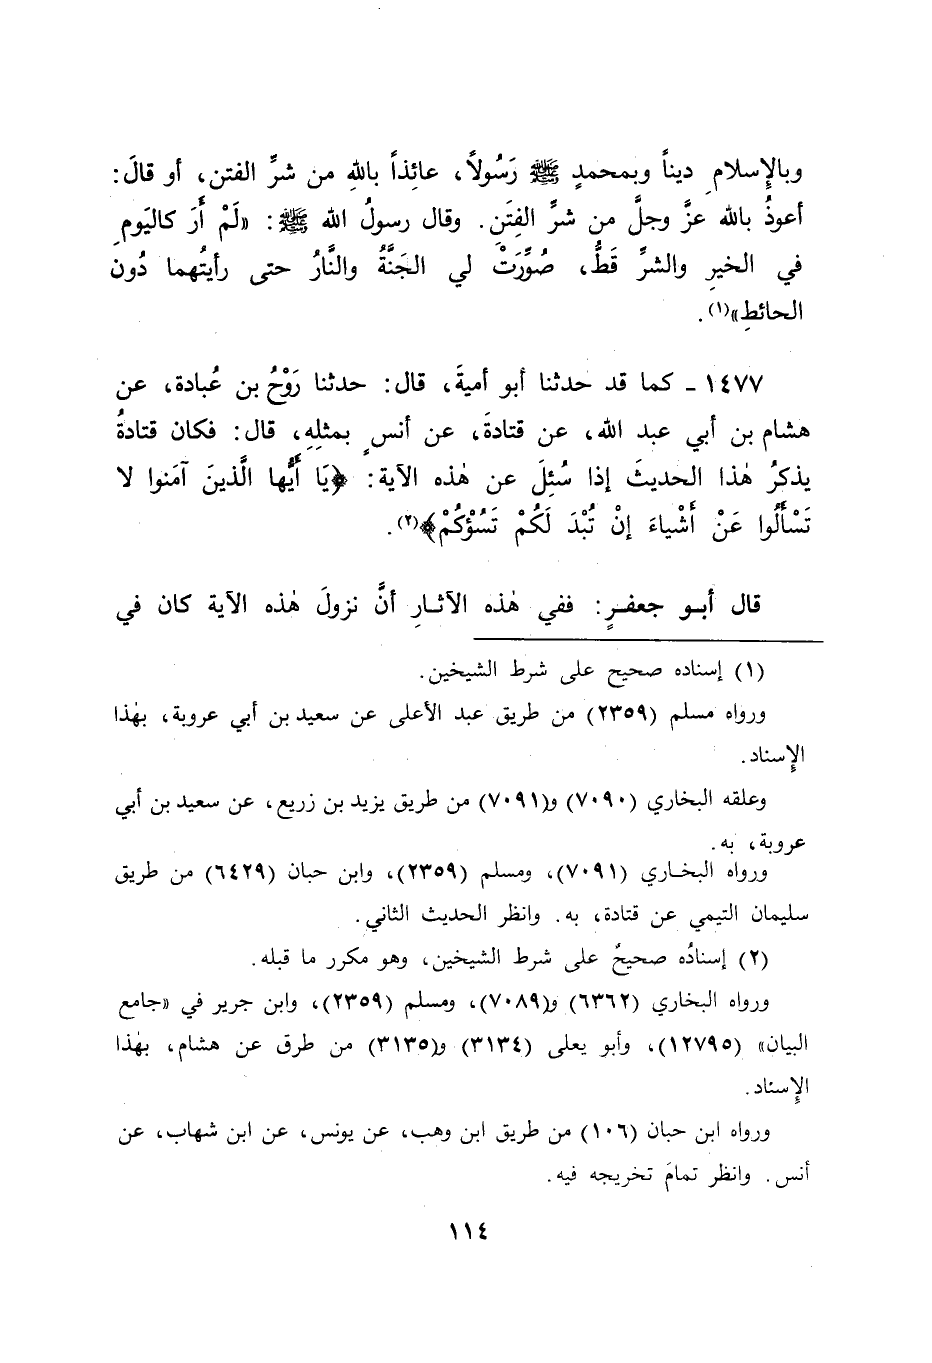 وبالإِسلامِ ديناً وبمحمدٍ ﷺ رَسُولاً، عائذاً باللهِ من شرِّ الفتن، أو قالَ:
أعوذُ بالله عزَّ وجلَّ من شرِّ الفِتَنِ. وقال رسولُ الله ﷺ: «لَمْ أَرَ كاليَومِ
في الخيرِ والشرِّ قَطُّ، صُوِّرَتْ لي الجَنَّةُ والنَّارُ حتى رأيتُهما دُون
الحائطِ»(١).
١٤٧٧ ـ كما قد حدثنا أبو أميةَ، قال: حدثنا رَوْحُ بن عُبادة، عن
هشام بن أبي عبد الله، عن قتادةَ، عن أنسٍ بمثلِهِ، قال: فكان قتادةُ
يذكرُ هٰذا الحديثَ إذا سُئِلَ عن هٰذه الآية: ﴿يَا أَيُّها الَّذينَ آمَنوا لا
تَسْأَلُوا عَنْ أَشْياءَ إنْ تُبْدَ لَكُمْ تَسُؤْكُمْ﴾(٢).
قال أبـو جعفـرٍ: ففي هٰذه الآثـارِ أنَّ نزولَ هٰذه الآية كان في
(١) إسناده صحيح على شرط الشيخين.
ورواه مسلم (٢٣٥٩) من طريق عبد الأعلى عن سعيد بن أبي عروبة، بهٰذا
الإِسناد.
وعلقه البخاري (٧٠٩٠) و(٧٠٩١) من طريق يزيد بن زريع، عن سعيد بن أبي
عروبة، به.
ورواه البخـاري (٧٠٩١)، ومسلم (٢٣٥٩)، وابن حبان (٦٤٢٩) من طريق
سليمان التيمي عن قتادة، به. وانظر الحديث الثاني.
(٢) إسنادُه صحيحٌ على شرط الشيخين، وهو مكرر ما قبله.
ورواه البخاري (٦٣٦٢) و(٧٠٨٩)، ومسلم (٢٣٥٩)، وابن جرير في «جامع
البيان» (١٢٧٩٥)، وأبو يعلى (٣١٣٤) و(٣١٣٥) من طرق عن هشام، بهٰذا
الإِسناد.
ورواه ابن حبان (١٠٦) من طريق ابن وهب، عن يونس، عن ابن شهاب، عن
أنس. وانظر تمامَ تخريجه فيه.
١١٤